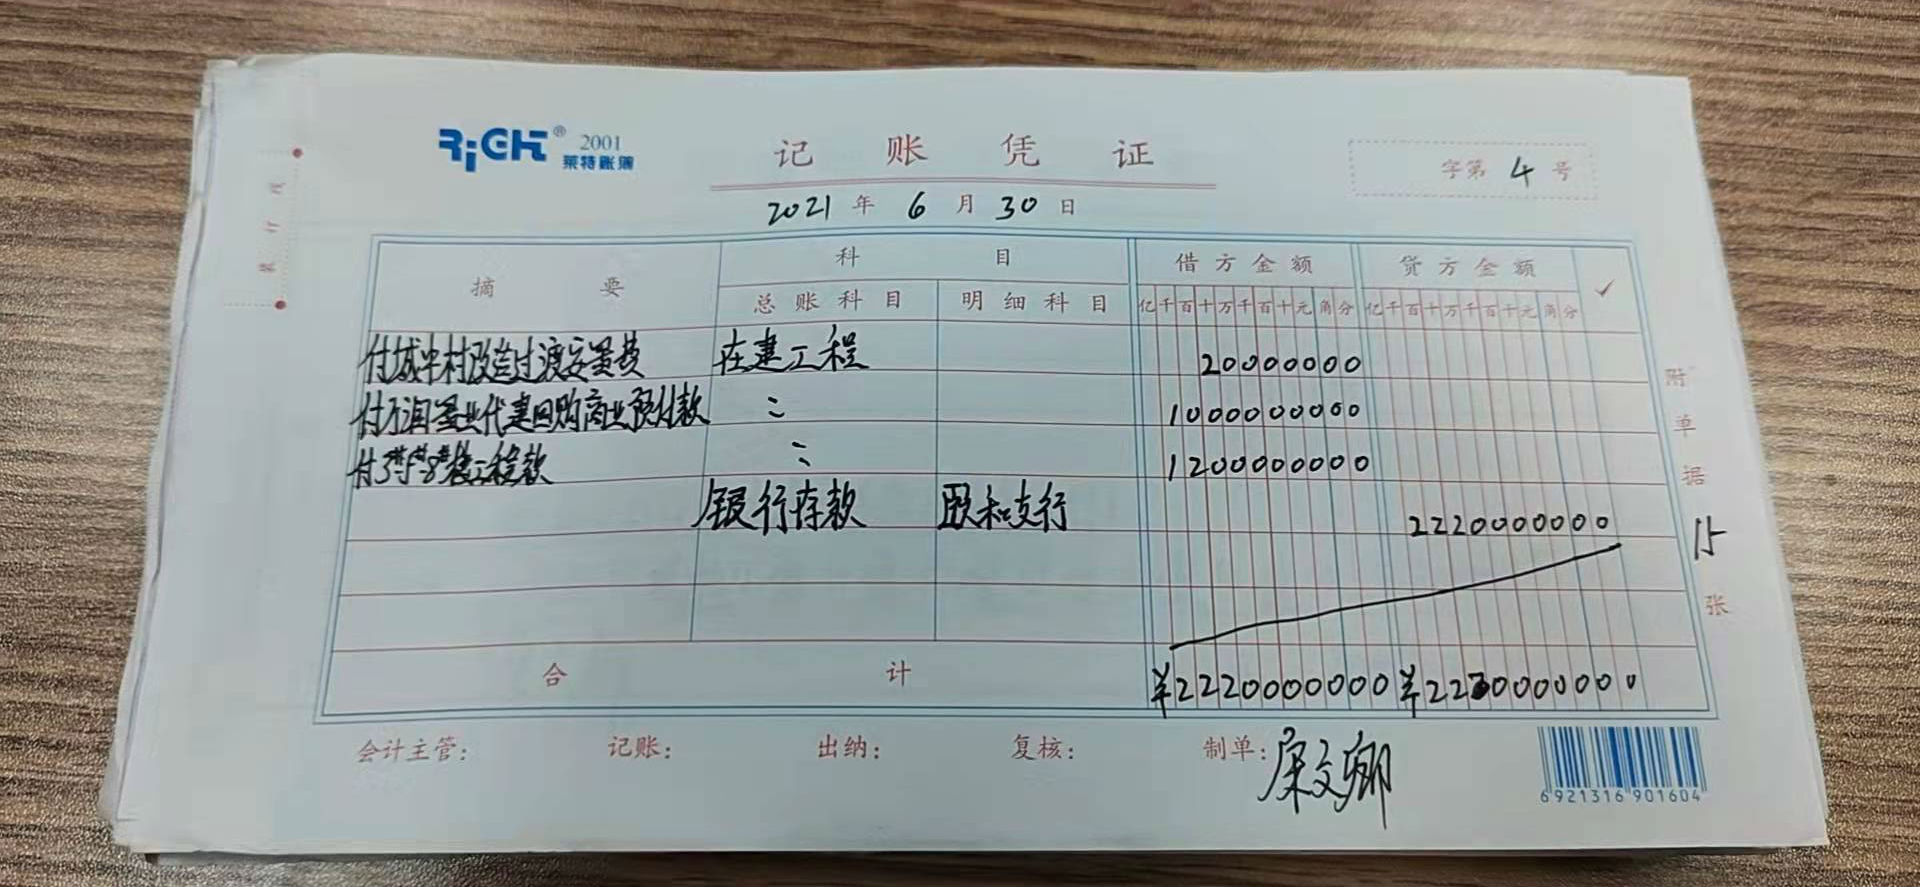 RiGHT® 2001
莱特账簿
记账凭证
字第 4 号
2021 年 6 月 30 日
装订线
摘要
科目
借方金额
贷方金额
✓
总账科目
明细科目
亿千百十万千百十元角分
亿千百十万千百十元角分
付城中村改造过渡安置费 在建工程 20000000
付万润置业代建回购商业预付款 〃 1000000000
付3#5#8#楼工程款 〃 1200000000
银行存款 颐和支行 2220000000
合计 ¥2220000000 ¥2220000000
附单据 15 张
会计主管: 记账: 出纳: 复核: 制单:
6921316901604